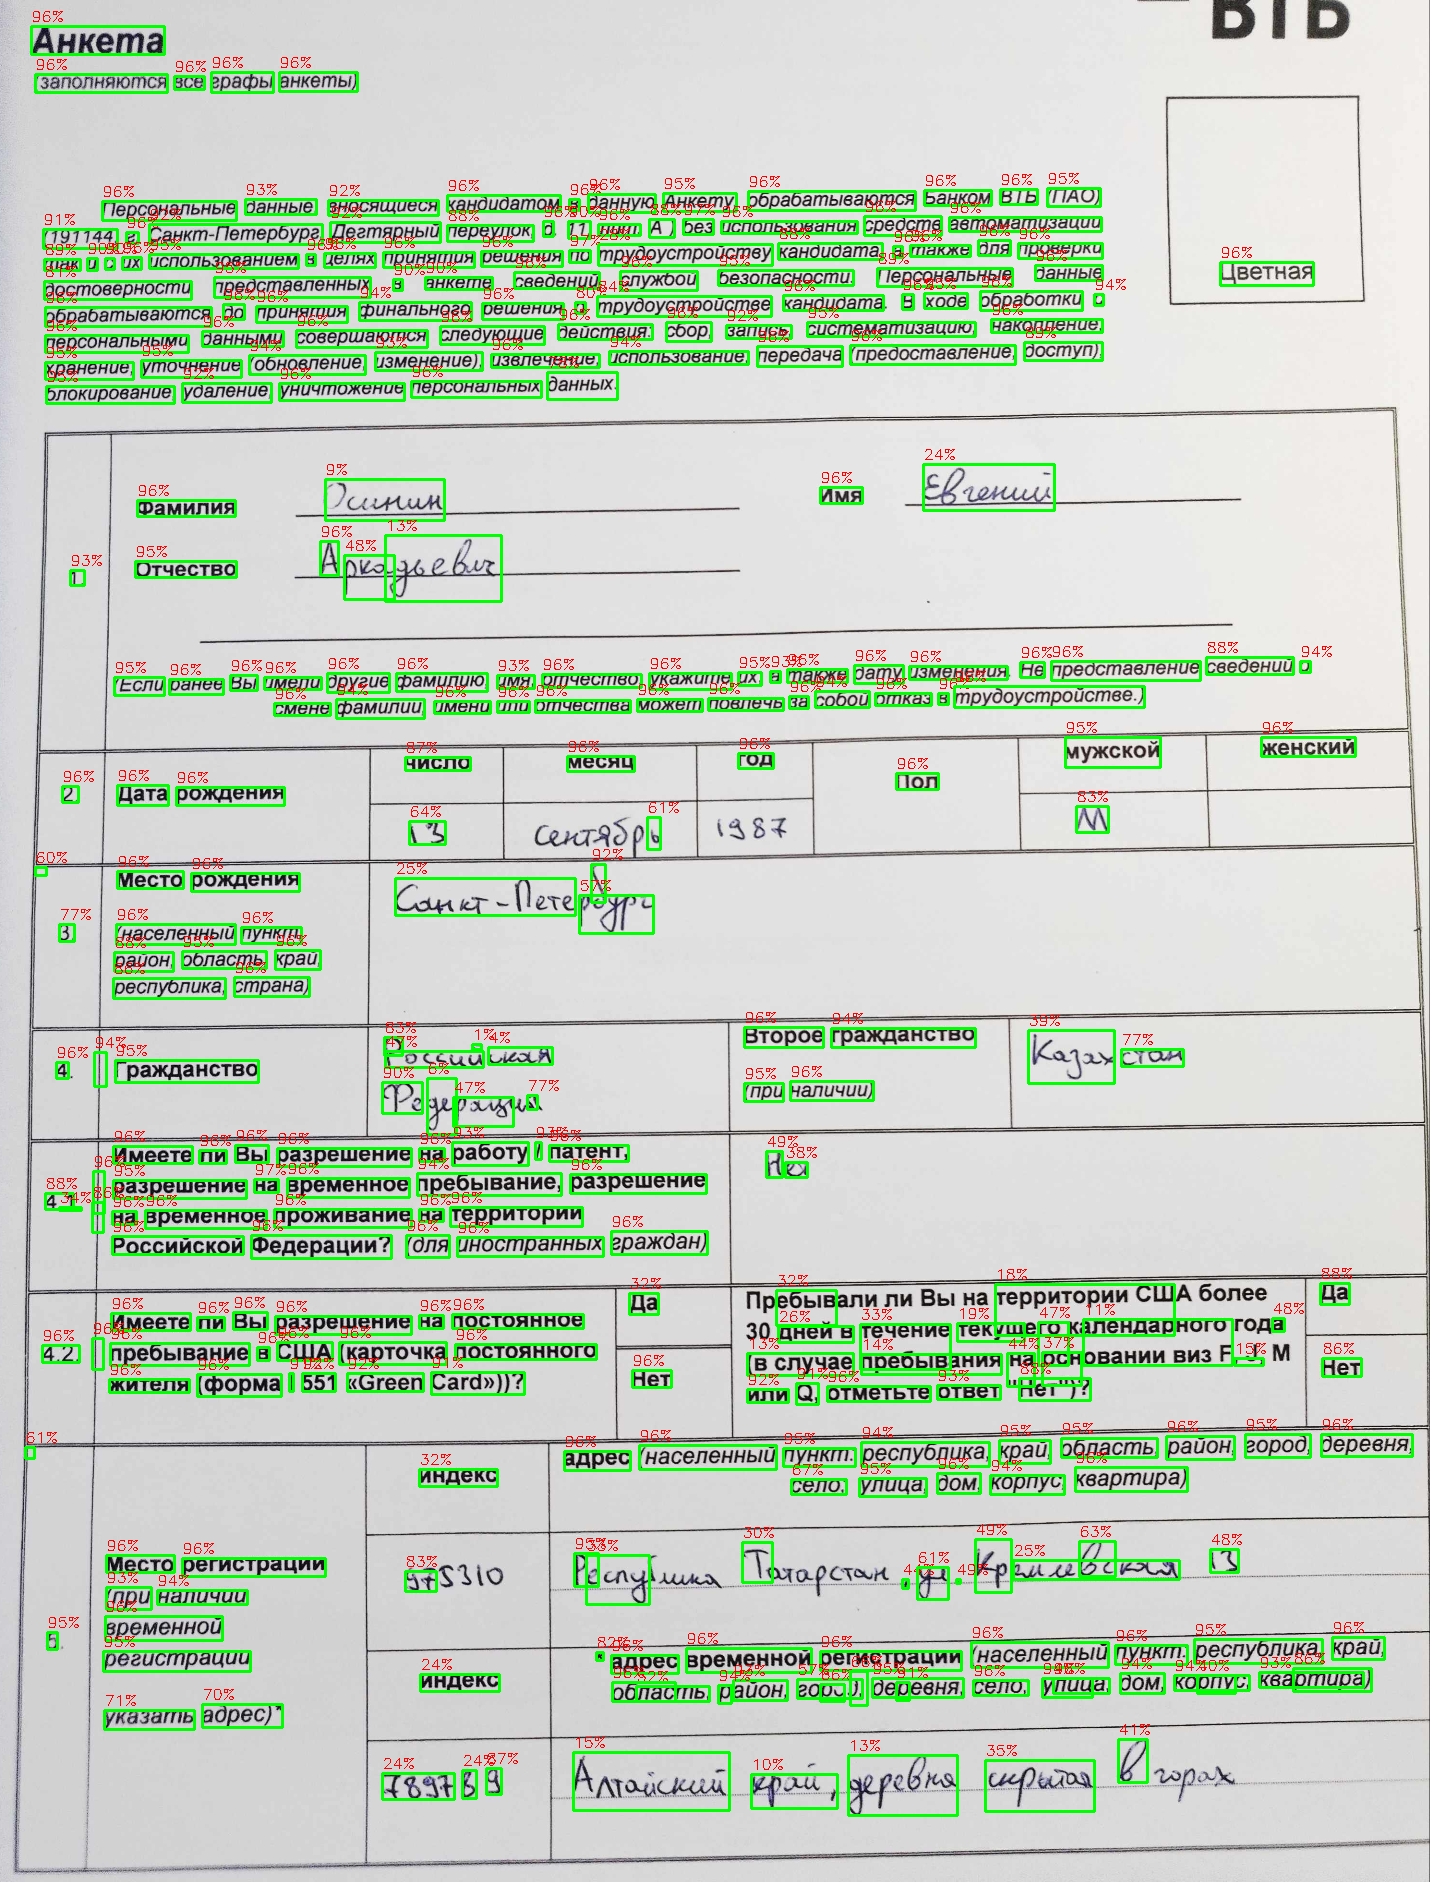 ВТБ
Анкета
(заполняются все графы анкеты)
Цветная
Персональные данные вносящиеся кандидатом в данную Анкету обрабатываются Банком ВТБ (ПАО)
(191144, г. Санкт-Петербург Дегтярный переулок д. 11 лит. А ) без использования средств автоматизации
так и с их использованием в целях принятия решения по трудоустройству кандидата, а также для проверки
достоверности представленных в анкете сведений службой безопасности. Персональные данные
обрабатываются до принятия финального решения о трудоустройстве кандидата. В ходе обработки с
персональными данными совершаются следующие действия: сбор, запись, систематизацию, накопление,
хранение, уточнение (обновление, изменение), извлечение, использование, передача (предоставление, доступ),
блокирование удаление, уничтожение персональных данных.
Фамилия Осинин Имя Евгений
1. Отчество Аркадьевич
(Если ранее Вы имели другие фамилию имя, отчество укажите их, а также дату изменения. Не представление сведений о
смене фамилии, имени или отчества может повлечь за собой отказ в трудоустройстве.)
2. Дата рождения число месяц год Пол мужской женский
13 сентябрь 1987 М
Место рождения Санкт-Петербург
3. (населенный пункт,
район, область, край,
республика, страна)
4. Гражданство Российская Федерация Второе гражданство (при наличии) Казахстан
4.1. Имеете ли Вы разрешение на работу / патент,
разрешение на временное пребывание, разрешение
на временное проживание на территории
Российской Федерации? (для иностранных граждан)
На
4.2. Имеете ли Вы разрешение на постоянное
пребывание в США (карточка постоянного
жителя (форма I 551 «Green Card»))?
Да
Нет
Пребывали ли Вы на территории США более
30 дней в течение текущего календарного года
(в случае пребывания на основании виз F, J, M
или Q, отметьте ответ "Нет")?
Да
Нет
индекс адрес (населенный пункт. республика, край, область, район, город, деревня,
село, улица, дом, корпус, квартира)
5. Место регистрации
(при наличии
временной
регистрации
указать адрес)*
975310 Республика Татарстан, ул. Кремлевская 13
индекс * адрес временной регистрации (населенный пункт. республика, край,
область, район, город, деревня, село, улица, дом, корпус, квартира)
789739 Алтайский край, деревня скрытая в горах